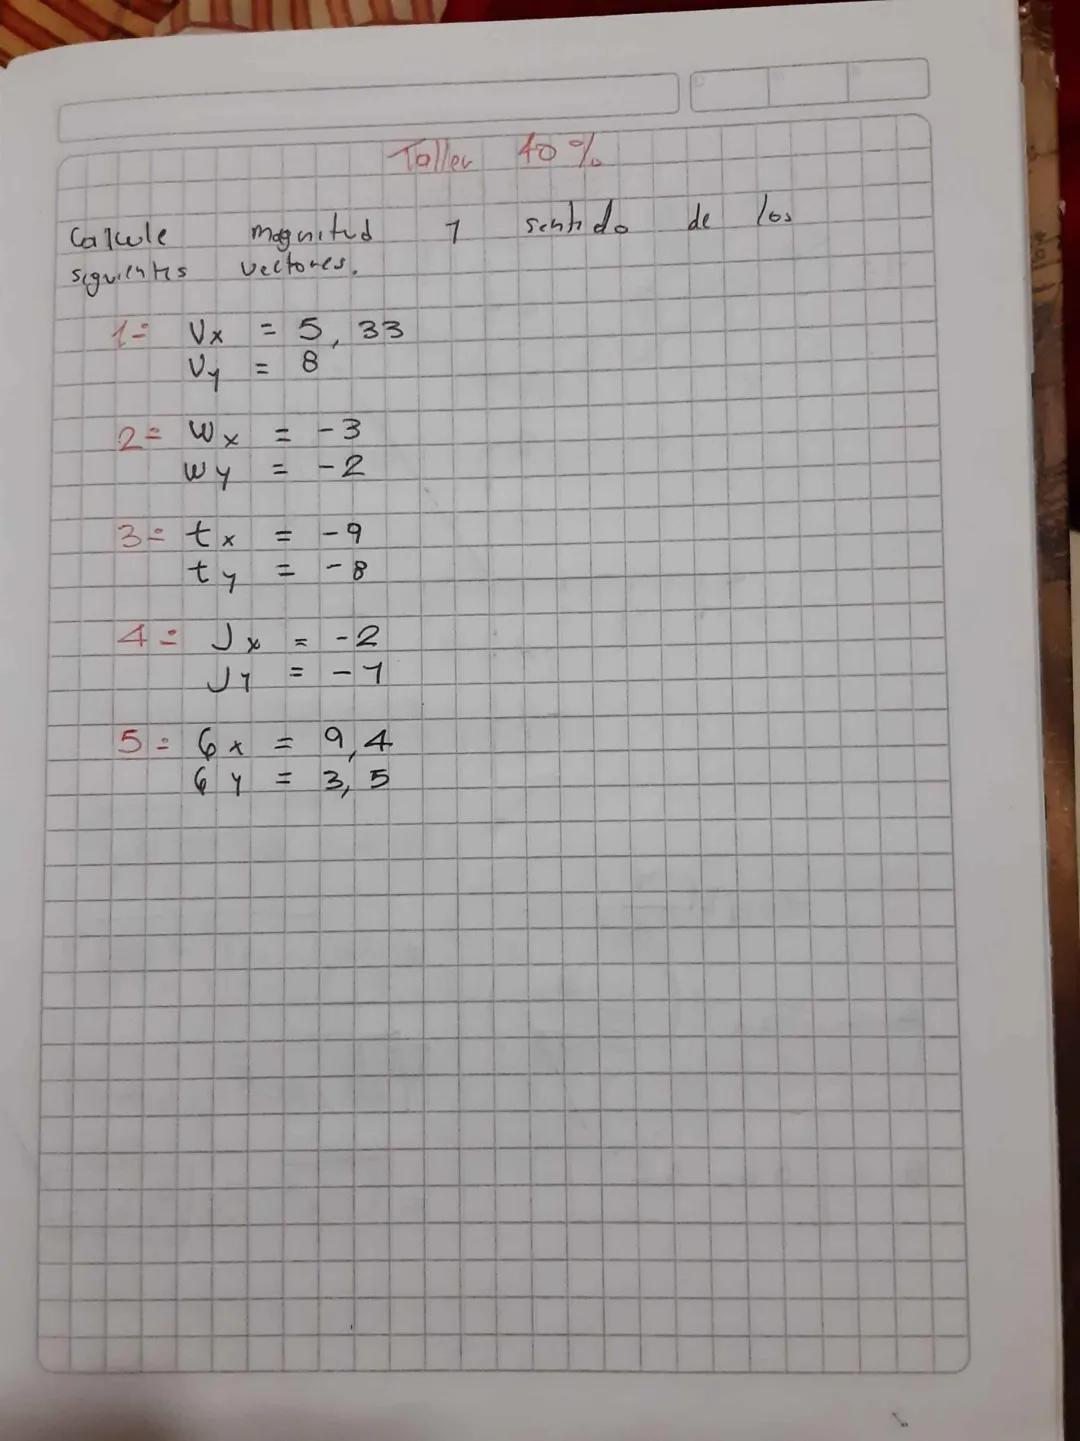 Taller 40%
Calcule magnitud y sentido de los
siguientes vectores.
1= Vx = 5,33
Vy = 8
2= Wx = -3
Wy = -2
3= tx = -9
ty = -8
4= Jx = -2
Jy = -7
5= Gx = 9,4
Gy = 3,5